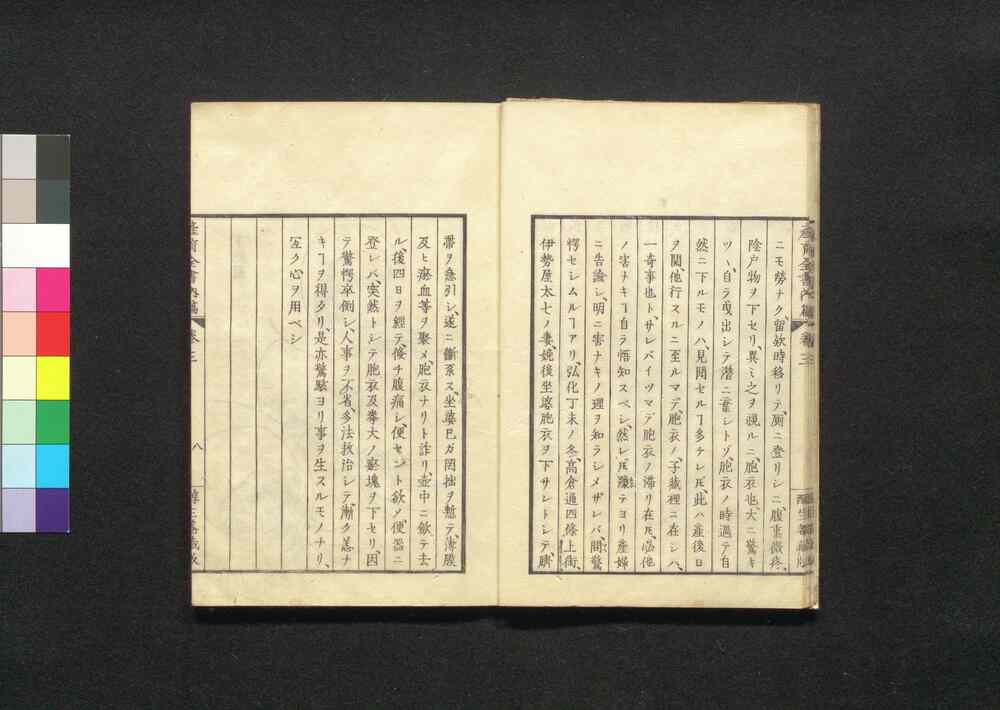 ニモ勞ナク、留歘時移リテ、厠ニ登リシニ、腹重微疼、
陰戸物ヲ下セリ、異ミ之ヲ視ルニ、胞衣也、大ニ驚キ
ツヽ、自ラ曳出シテ潜ニ葬シトソ、胞衣ノ時過テ自
然ニ下ルモノハ、見聞セルヿ多ケレ𪜈、此ハ産後日
ヲ閲、他行スルニ至ルマデ、胞衣ノ、子蔵裡ニ在シハ、
一奇事也ト、サレバイツマデ、胞衣ノ滞リ在𪜈、必他
ノ害ナキヿ自ラ悟知スベシ、然レ𪜈、豫テヨリ産婦
ニ告諭シ、明ニ害ナキノ理ヲ知ラシメザレバ、間驚
愕セシムルヿアリ、弘化丁未ノ冬、高倉通四條上街、
伊勢屋太七ノ妻、娩後坐婆胞衣ヲ下サレトシテ、臍
帶ヲ急引シ、遂ニ斷系ス、坐婆巳ガ罔拙ヲ慙テ、薄膜
及ヒ瘀血等ヲ聚メ、胞衣ナリト詐リ、壺中ニ斂テ去
ル、後四日ヲ經テ、倐チ腹痛シ、便セント欲メ便器ニ
登レバ、突然トシテ胞衣及拳大ノ瘀塊ヲ下セリ、因
テ驚愕卒倒シ、人事ヲ不省、多法救治シテ、漸ク恙ナ
キヿヲ得タリ、是亦驚駭ヨリ事ヲ生スルモノナリ、
宜ク心ヲ用ベシ
産育全書内篇 卷三
八